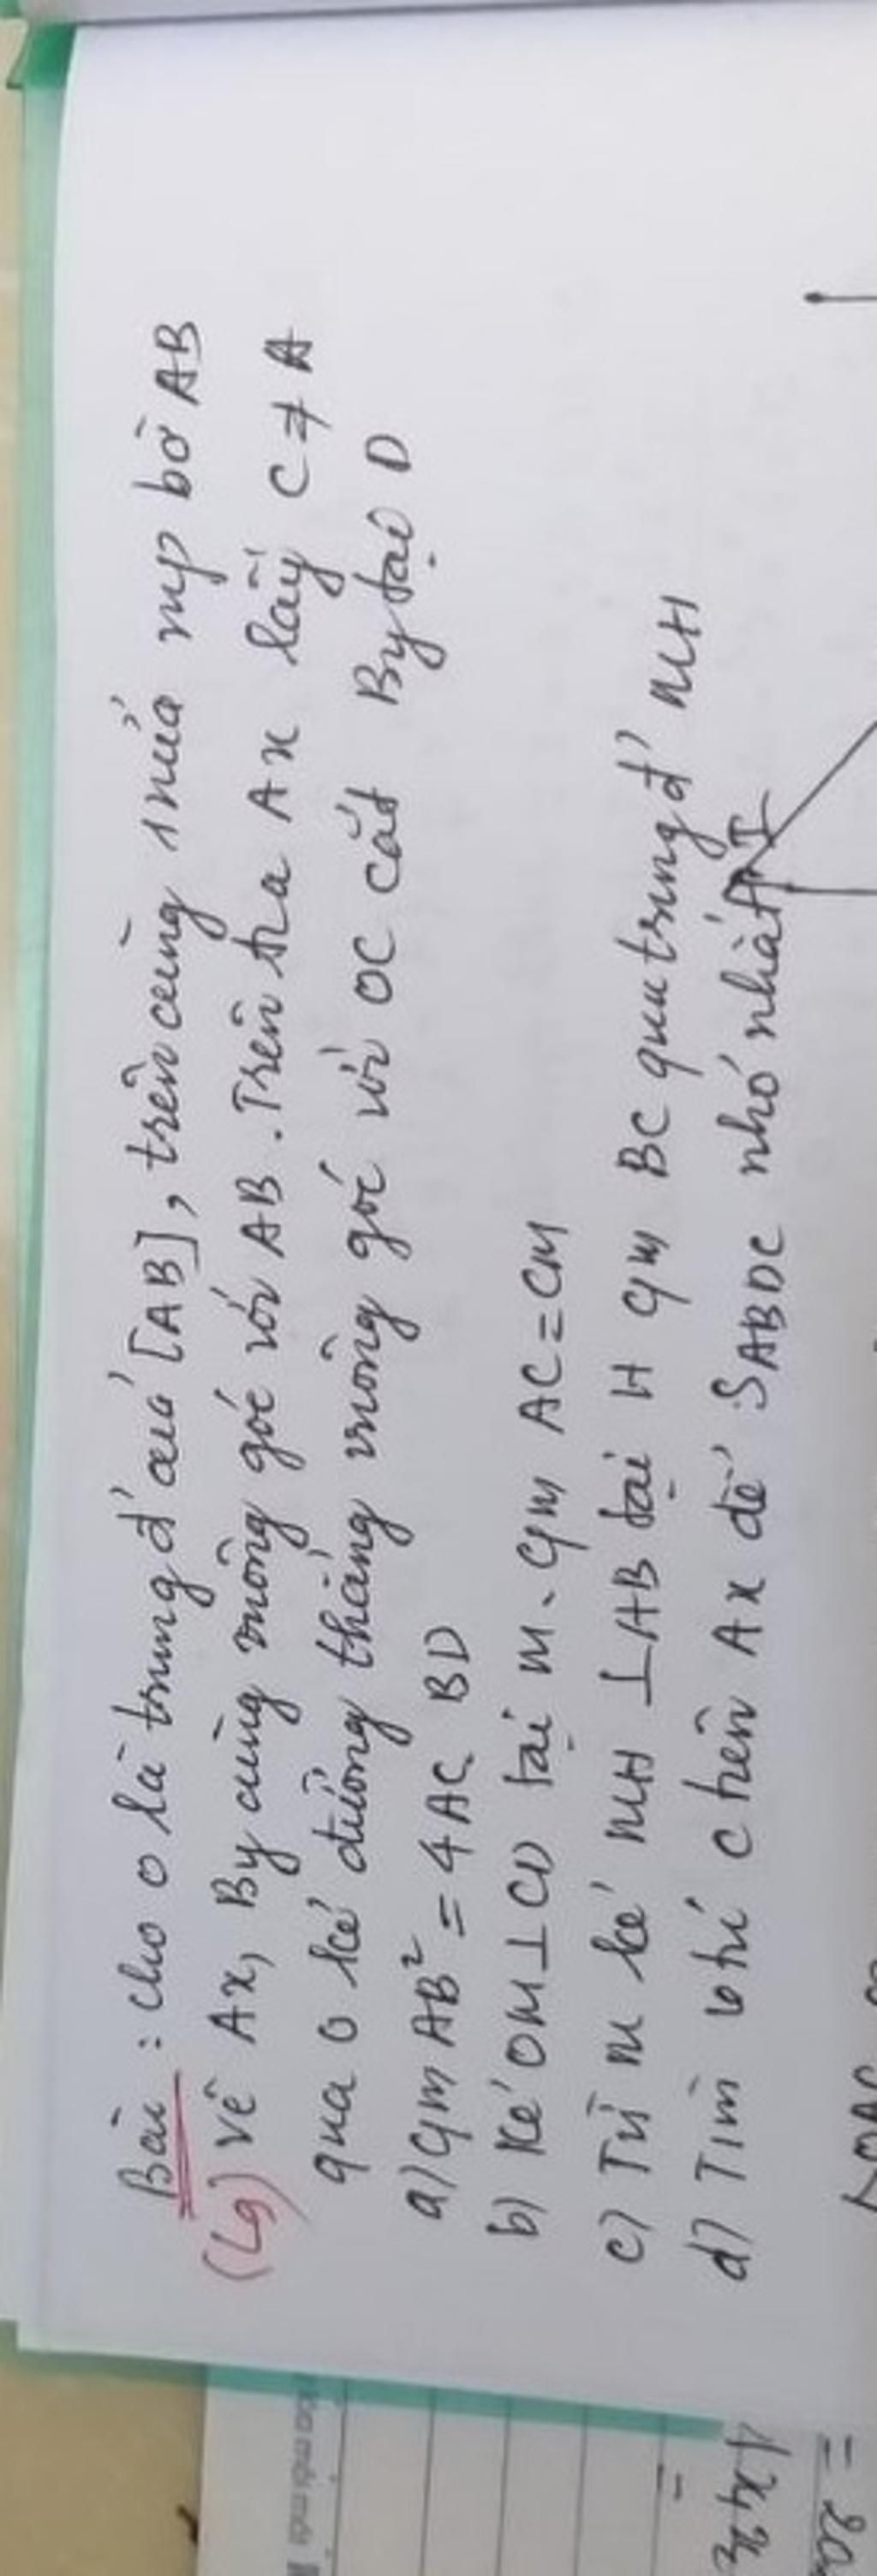 Bài : Cho O là trung đ' của [AB], trên cùng 1 nửa mp bờ AB
(Lg) vẽ Ax, By cùng vuông góc với AB. Trên tia Ax lấy C ≠ A
qua O kẻ đường thẳng vuông góc với OC cắt By tại D
a) CM AB² = 4 AC BD
b) Kẻ OM ⊥ CD tại M. CM AC = CM
c) Từ M kẻ MH ⊥ AB tại H CM BC qua trung đ' MH
d) Tìm vtrí C trên Ax để S ABDC nhỏ nhất
I